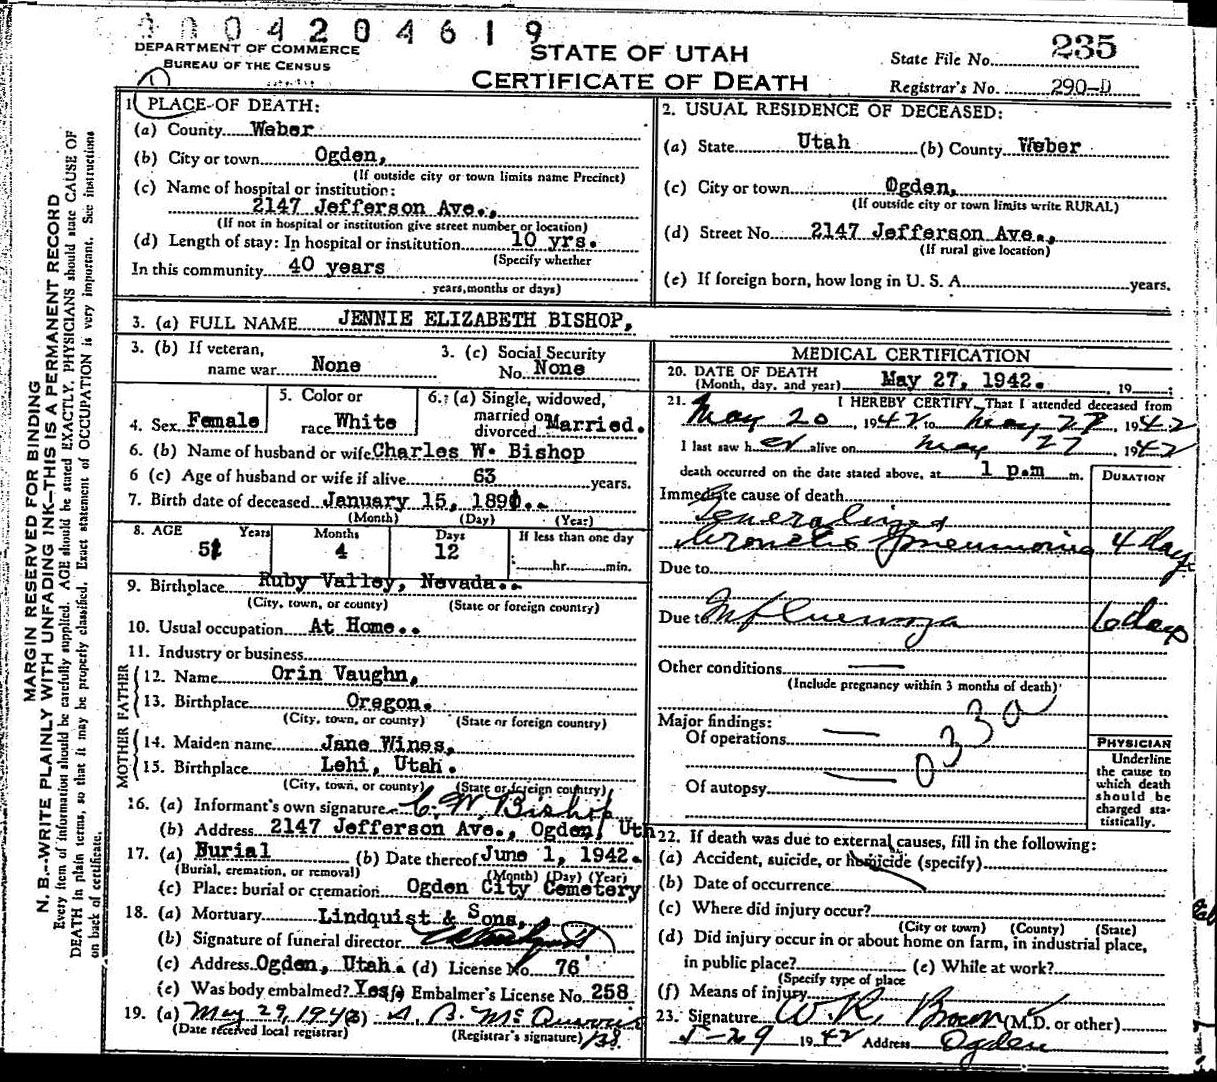 0004204619
DEPARTMENT OF COMMERCE
BUREAU OF THE CENSUS
STATE OF UTAH
CERTIFICATE OF DEATH
State File No. 235
Registrar's No. 290-D
MARGIN RESERVED FOR BINDING
N. B.--WRITE PLAINLY WITH UNFADING INK--THIS IS A PERMANENT RECORD
Every item of information should be carefully supplied. AGE should be stated EXACTLY. PHYSICIANS should state CAUSE OF
DEATH in plain terms, so that it may be properly classified. Exact statement of OCCUPATION is very important. See instructions
on back of certificate.
1. PLACE OF DEATH:
(a) County Weber
(b) City or town Ogden,
(If outside city or town limits name Precinct)
(c) Name of hospital or institution:
2147 Jefferson Ave.,
(If not in hospital or institution give street number or location)
(d) Length of stay: In hospital or institution 10 yrs.
(Specify whether
In this community 40 years
years, months or days)
2. USUAL RESIDENCE OF DECEASED:
(a) State Utah (b) County Weber
(c) City or town Ogden,
(If outside city or town limits write RURAL)
(d) Street No. 2147 Jefferson Ave.,
(If rural give location)
(e) If foreign born, how long in U. S. A. years.
3. (a) FULL NAME JENNIE ELIZABETH BISHOP,
3. (b) If veteran,
name war None
3. (c) Social Security
No. None
4. Sex Female
5. Color or
race White
6. (a) Single, widowed,
married or
divorced Married.
6. (b) Name of husband or wife Charles W. Bishop
6 (c) Age of husband or wife if alive 63 years.
7. Birth date of deceased January 15, 189
(Month) (Day) (Year)
8. AGE Years Months Days If less than one day
4 12 hr. min.
9. Birthplace Ruby Valley, Nevada..
(City, town, or county) (State or foreign country)
10. Usual occupation At Home..
11. Industry or business
FATHER
12. Name Orin Vaughn,
13. Birthplace Oregon.
(City, town, or county) (State or foreign country)
MOTHER
14. Maiden name Jane Wines,
15. Birthplace Lehi, Utah.
(City, town, or county) (State or foreign country)
16. (a) Informant's own signature C. W. Bishop
(b) Address 2147 Jefferson Ave., Ogden, Uth
17. (a) Burial (b) Date thereof June 1, 1942.
(Burial, cremation, or removal) (Month) (Day) (Year)
(c) Place: burial or cremation Ogden City Cemetery
18. (a) Mortuary Lindquist & Sons,
(b) Signature of funeral director
(c) Address Ogden, Utah. (d) License No. 76
(e) Was body embalmed? Yes (f) Embalmer's License No. 258
19. (a) May 29, 1942 (b)
(Date received local registrar) (Registrar's signature)
MEDICAL CERTIFICATION
20. DATE OF DEATH
(Month, day, and year) May 27, 1942. , 19 ;
21. I HEREBY CERTIFY, That I attended deceased from
May 20, 1942 to May 27, 1942
I last saw her alive on May 27 1942
death occurred on the date stated above, at 1 p.m m.
DURATION
Immediate cause of death
Generalized
Broncho pneumonia 4 day
Due to
Due to Influenza 6 days
Other conditions —
(Include pregnancy within 3 months of death)
Major findings:
Of operations —
033a
Of autopsy —
PHYSICIAN
Underline
the cause to
which death
should be
charged sta-
tistically.
22. If death was due to external causes, fill in the following:
(a) Accident, suicide, or homicide (specify)
(b) Date of occurrence
(c) Where did injury occur?
(City or town) (County) (State)
(d) Did injury occur in or about home on farm, in industrial place,
in public place? (e) While at work?
(Specify type of place
(f) Means of injury
23. Signature W. R. Brown (M.D. or other)
5-29 1942 Address Ogden